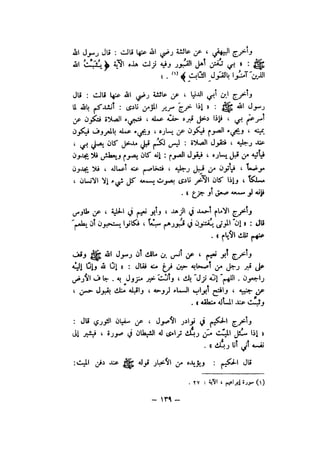 وأخرج البيهقي ، عن عائشة رضي الله عنها قالت : قال رسول الله
ﷺ : « بي تُفتن أهل القُبور وفيه نزلت هذه الآية ﴿ يُثَبِّتُ اللهُ
الذينَ آمنُوا بالقَولِ الثَّابتِ ﴾ (١) » .
وأخرج ابن أبي الدنيا ، عن عائشة رضي الله عنها قالت : قال
رسول الله ﷺ : « إذا خرج سرير المؤمن نادى : أنشدكم بالله لما
أسرعتم بي ، فإذا دخل قبره حفّه عمله ، فتجيء الصلاة فتكون عن
يمينه ، ويجيء الصوم فيكون عن يساره ، ويجيء عمله بالمعروف فيكون
عند رجليه ، فتقول الصلاة : ليس لكم قبلي مدخل كان يصلي بي ،
فيأتيه من قبل يساره ، فيقول الصوم : إنه كان يصوم ويعطش فلا يجدون
موضعاً ، فيأتون من قبل رجليه ، فتخاصم عنه أعماله ، فلا يجدون
مسلكاً ، وإذا كان الآخر نادى بصوت يسمعه كل شيء إلا الانسان ،
فإنه لو سمعه صعق أو جزع » .
وأخرج الامام أحمد في الزهد ، وأبو نعيم في الحلية ، عن طاوس
قال : « إن الموتى يفتنون في قبورهم سبعاً ، فكانوا يستحبون أن يطعم
عنهم تلك الأيام » .
وأخرج أبو نعيم ، عن أنس بن مالك أن رسول الله ﷺ وقف
على قبر رجل من أصحابه حين فرغ منه فقال : « إنا لله وإنا إليه
راجعون . اللهم إنه نزل بك ، وأنت خير منزول به . جاف الأرض
عن جنبيه ، وافتح أبواب السماء لروحه ، واقبله منك بقبول حسن ،
وثبت عند المسألة منطقه » .
وأخرج الحكيم في نوادر الأصول ، عن سفيان الثوري قال :
« إذا سئل الميت من ربك تراءى له الشيطان في صورة ، فيشير إلى
نفسه أني أنا ربك » .
قال الحكيم : ويؤيده من الأخبار قوله ﷺ عند دفن الميت:
(١) سورة إبراهيم ، الآية : ٢٧ .
— ١٣٩ —